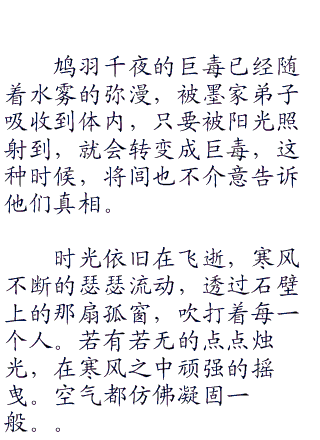 鸠羽千夜的巨毒已经随
着水雾的弥漫，被墨家弟子
吸收到体内，只要被阳光照
射到，就会转变成巨毒，这
种时候，将闾也不介意告诉
他们真相。
时光依旧在飞逝，寒风
不断的瑟瑟流动，透过石壁
上的那扇孤窗，吹打着每一
个人。若有若无的点点烛
光，在寒风之中顽强的摇
曳。空气都仿佛凝固一
般。。